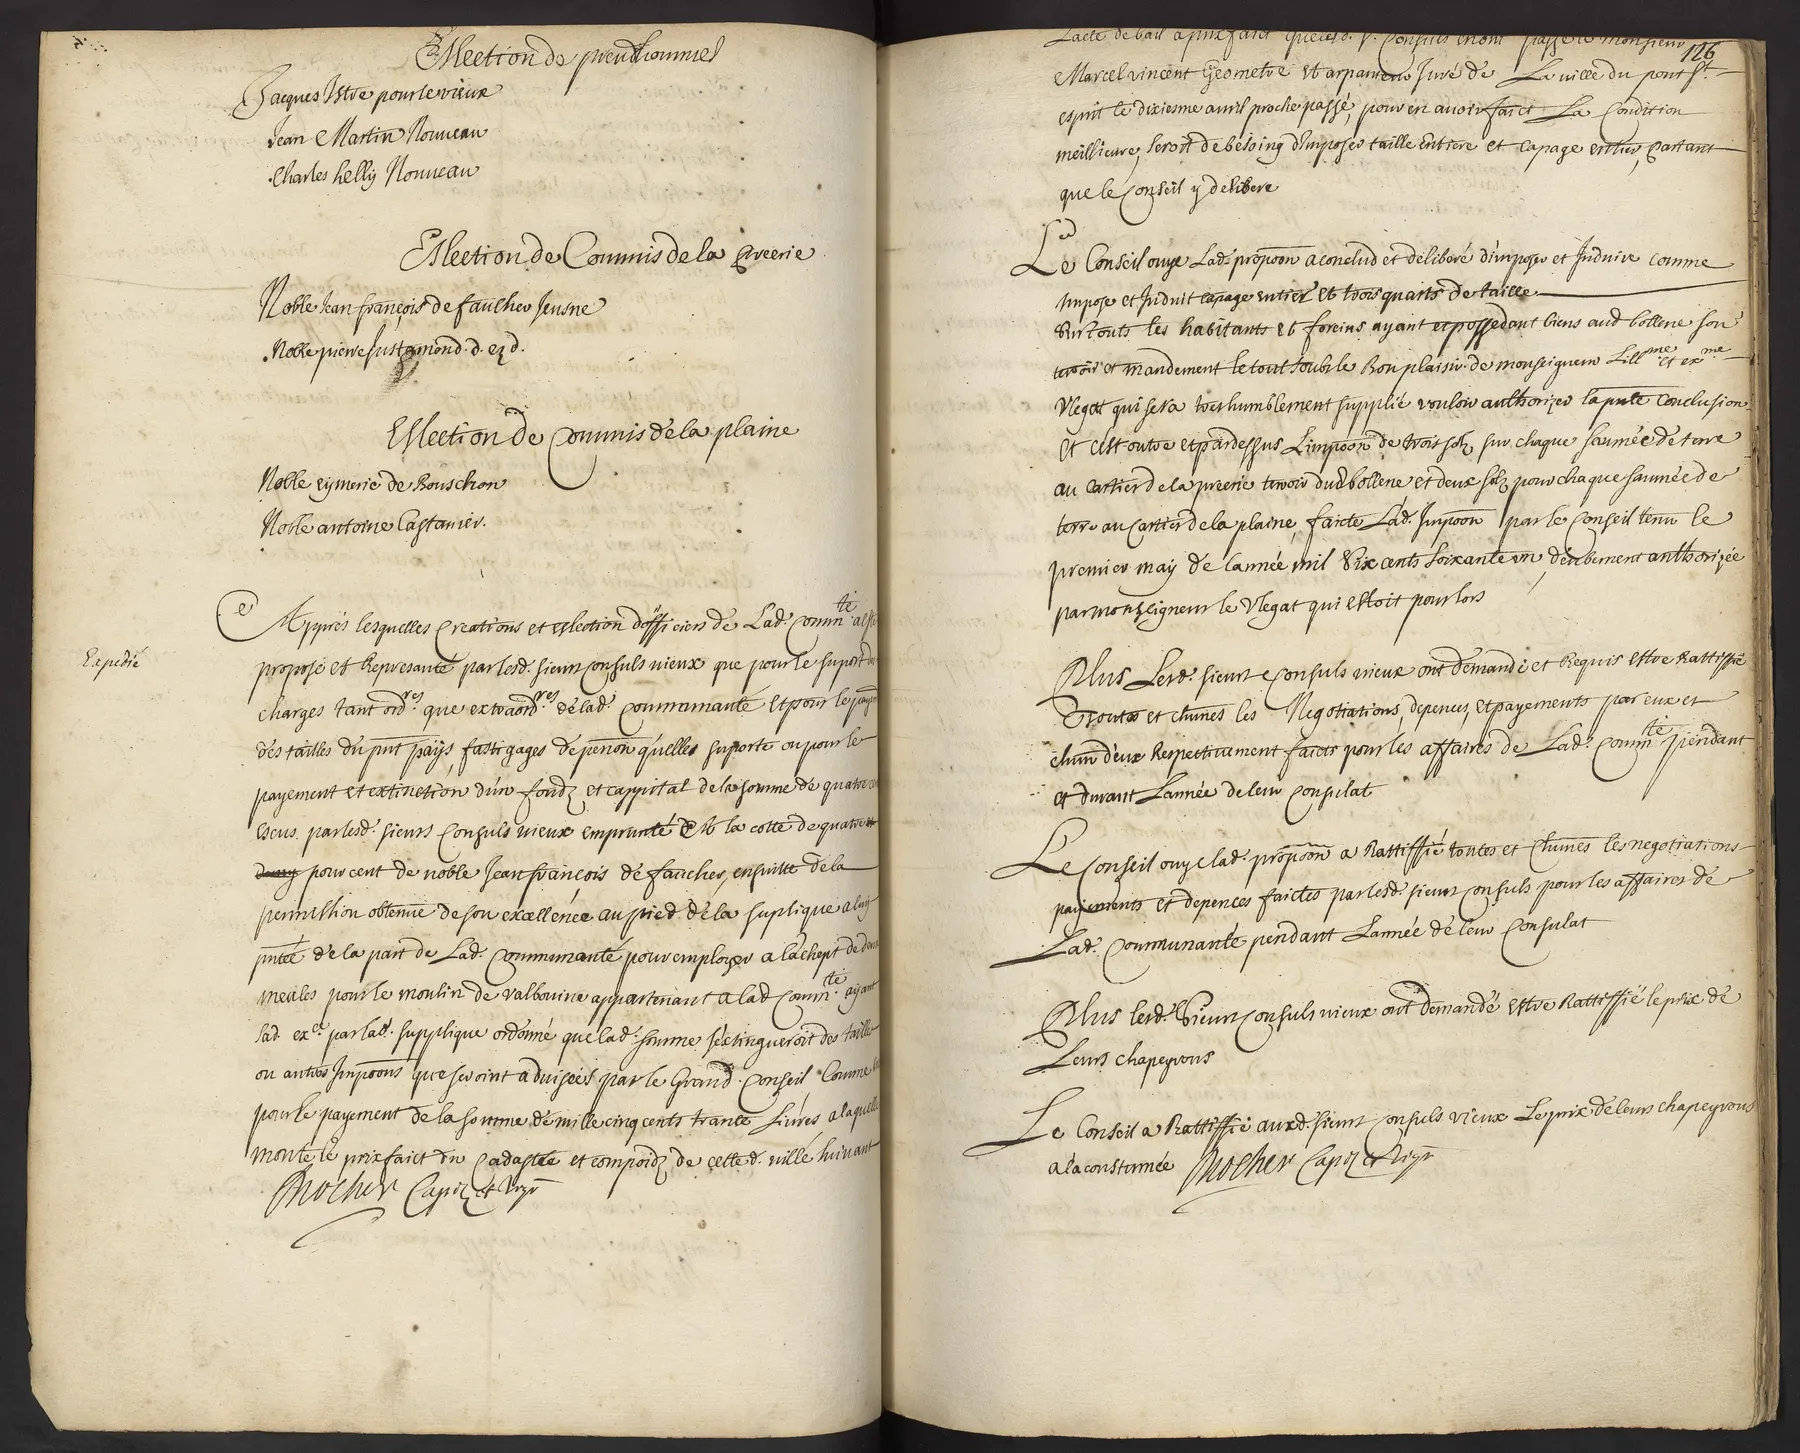 Eslection de preudhommes
Jacques Istre pour le vieux
Jean Martin Nouveau
Charles helly Nouveau
Eslection de Commis de la preerie
Noble Jean françois de faucher Jeusne
Noble pierre Justamond. d. ez d.
Eslection de Commis de la plaine
Noble eymeric de Rouschon
Noble antoine Castanier.
Expedié
Appres lesquelles Creations et eslection d'officiers de Lad. Comm.té
proposé et Represanté par lesd. sieurs Consuls vieux que pour le suport des
charges tant ord.res que extraord.res de lad. Communauté et pour le payem
des tailles du pnt pays, fastigages depenon qu'elles suporte ou pour le
payement et extinction d'un fondz et cappital de la somme de quatre
escus par lesd. sieurs Consuls vieux emprunté à la cotte de quatre
pour cent de noble Jean françois de faucher, ensuitte de la
permission obtenue de son excellence au pied de la suplique a luy
pntée de la part de Lad. Communauté pour employer a lachept de deux
meules pour le moulin de valbonne appartenant a lad Comm.té ayant
sad. ex.e par lad. supplique ordonné que lad. somme s'estingueroit des tailles
ou autres Impoons que seroint advisées par le Grand Conseil Comme
pour le payement de la somme de mille cinq cents trante Livres a laquelle
monte le prixfaict du Cadastre et compoidz de cette d. ville suivant
Rocher
126
Lacte de bail a prixfaict que lesd. s. Consuls en ont passé a monsieur
Marcel vincent Geometre et arpanteur Juré de La ville du pont S.t
esprit le dixiesme avril proche passé, pour en avoir faict La Condition
meillieure, seroit de besoing d'Imposer taille entiere et capage entier, partant
que le Conseil y delibere
Le Conseil ouye Lad. propoon a conclud et deliberé d'imposer et Induire comme
Impose et Induit capage entier et trois quarts de taille
Sur touts les habitants et foreins ayant et possedant biens aud bollene son
terroir et mandement le tout soubz le Bon plaisir de monseigneur Lill.me et ex.me
Vlegat qui sera tres humblement supplié vouloir authorizer la pnte Conclusion
Et c'est outre et par dessus Limpoon de trois solz sur chaque saumée de terre
au Cartier de la preerie terroir dud bollene et deux solz pour chaque saumée de
terre au Cartier de la plaine, faicte Lad. Impoon par le Conseil tenu le
premier may de lannée mil Six cents soixante un, deubement authorizée
par monseigneur le Vlegat qui estoit pour lors
Plus Lesd. sieurs Consuls vieux ont demandé et Requis estre Rattiffié
toutes et chunes les Negotiations, depences, et payements par eux et
chun d'eux Respectivement faicts pour les affaires de Lad. Comm.té pendant
et durant Lannée de leur Consulat
Le Conseil ouye lad. propoon a Rattiffié toutes et Chunes les negotiations
payements et depences faictes par lesd. sieurs Consuls pour les affaires de
Lad. Communauté pendant Lannée de leur Consulat
Plus lesd. Sieurs Consuls vieux ont demandé estre Rattiffié le prix de
Leurs chapeyrons
Le Conseil a Rattiffié auxd. sieurs Consuls vieux Le prix de leurs chapeyrons
a la constumée Rocher